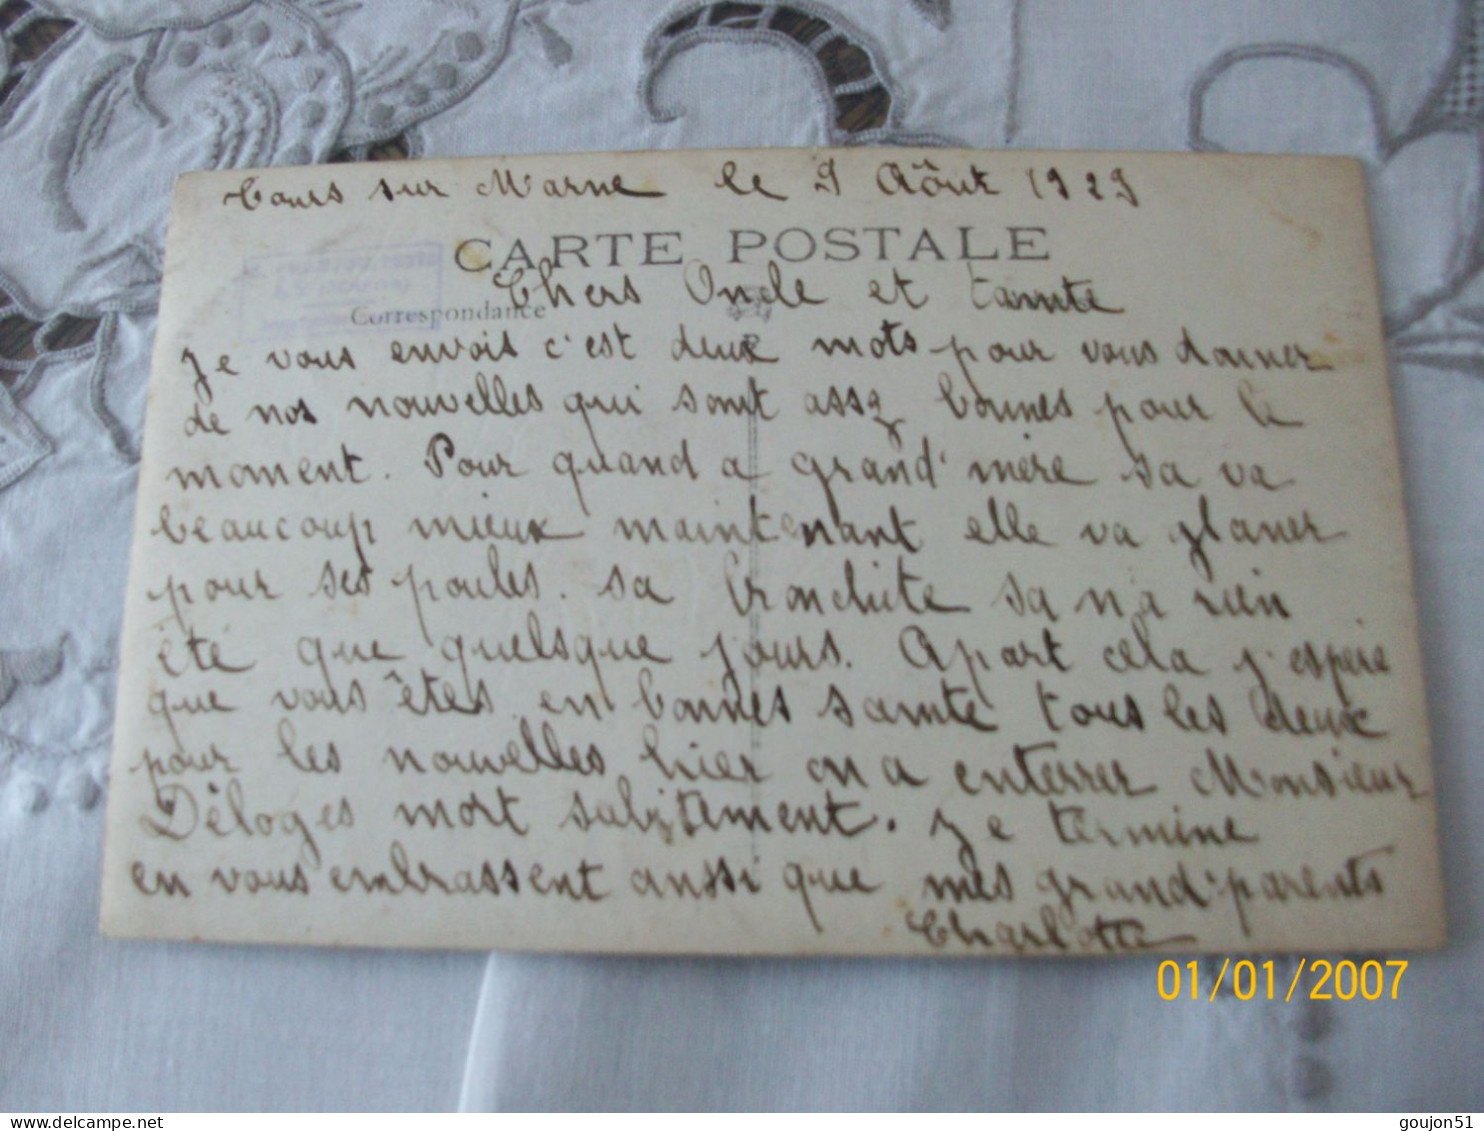 Tours sur Marne le 9 Aôut 1929
CARTE POSTALE
Chers Oncle et tamte
Correspondance
Je vous envois c'est deux mots pour vous donner
de nos nouvelles qui somt assz bonnes pour le
moment. Pour quand a grand'mère sa va
beaucoup mieux maintenant elle va glaner
pour ses poules. sa bronchite sa na rien
été que quelsque jours. Apart cela j'espère
que vous êtes en bonnes samte tous les deux
pour les nouvelles hier on a enterrer Monsieur
Déloges mort subitement. Je termine
en vous embrassent aussi que mes grand-parents
Charlotte
01/01/2007
goujon51